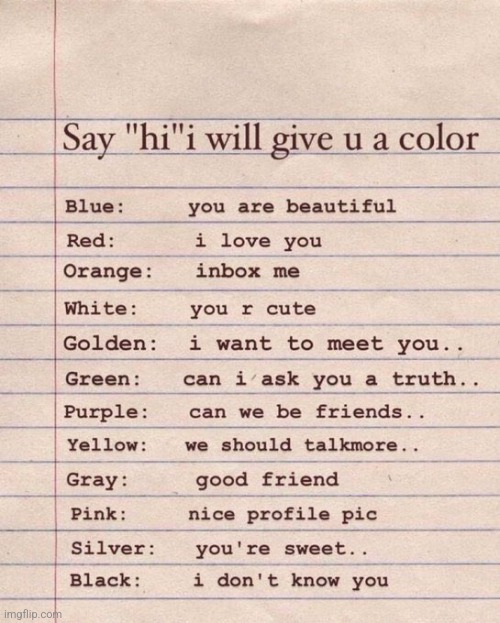 Say "hi"i will give u a color
Blue: you are beautiful
Red: i love you
Orange: inbox me
White: you r cute
Golden: i want to meet you..
Green: can i ask you a truth..
Purple: can we be friends..
Yellow: we should talkmore..
Gray: good friend
Pink: nice profile pic
Silver: you're sweet..
Black: i don't know you
imgflip.com